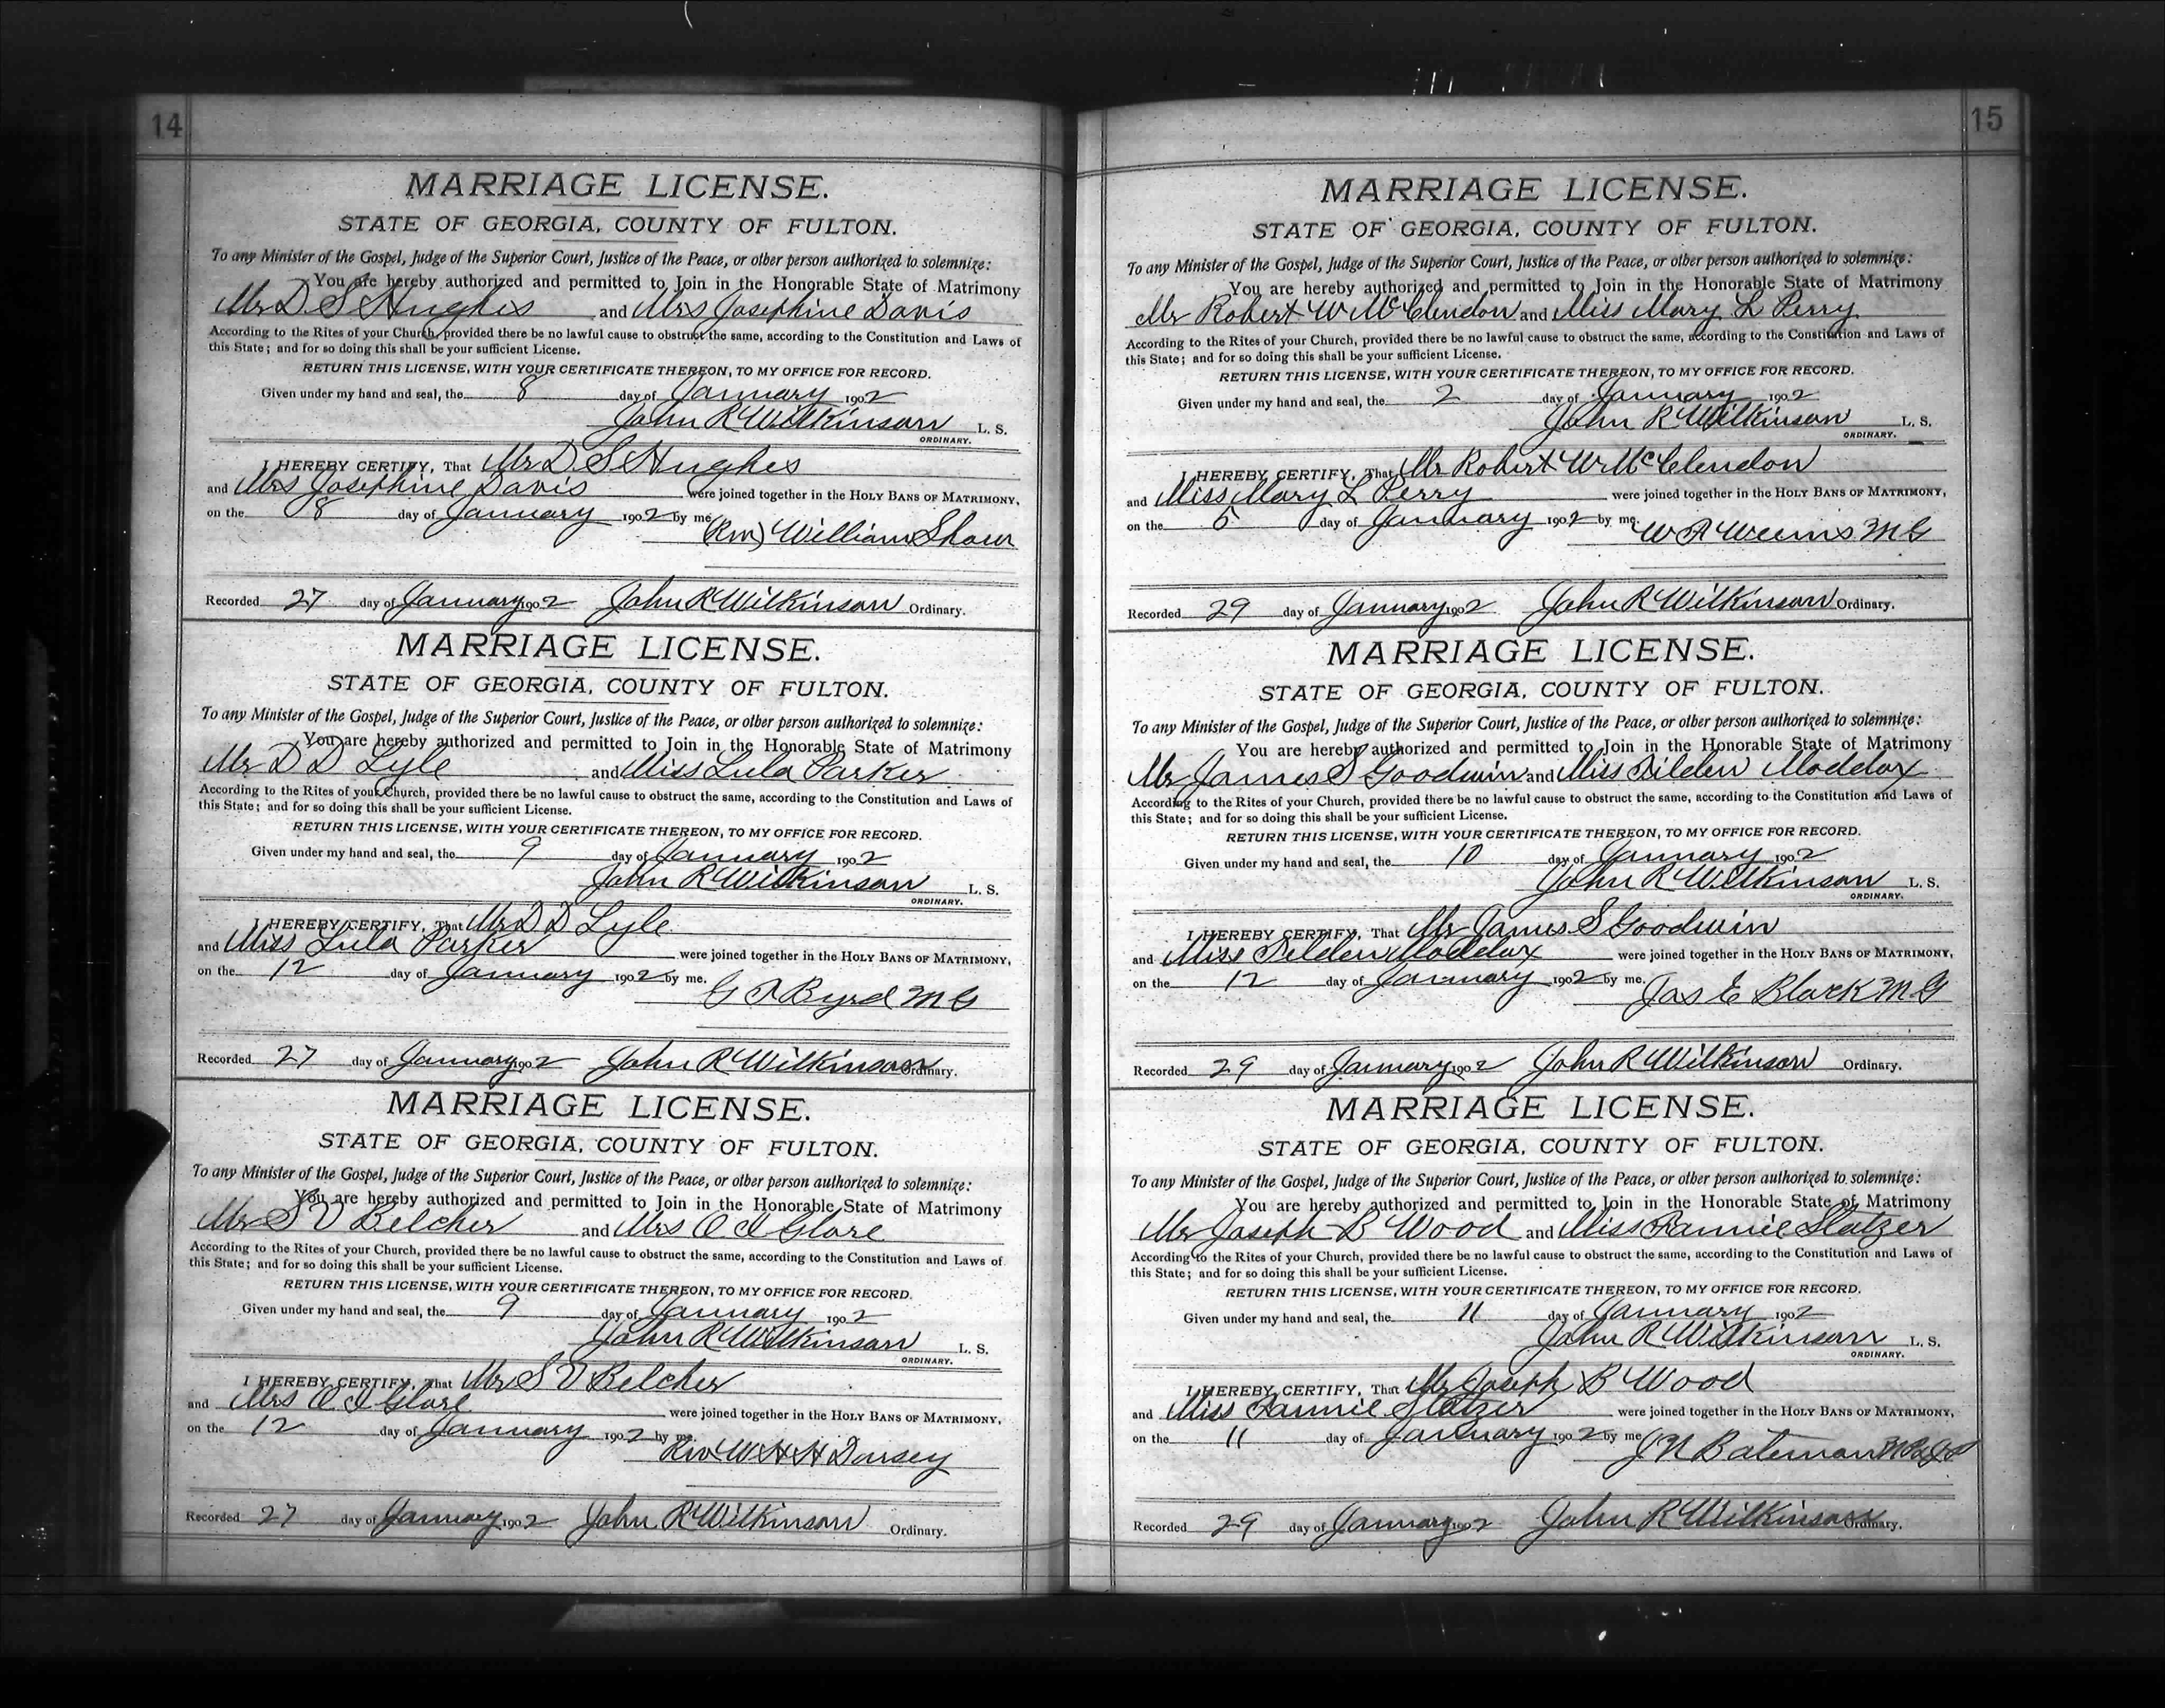 14
MARRIAGE LICENSE.
STATE OF GEORGIA, COUNTY OF FULTON.
To any Minister of the Gospel, Judge of the Superior Court, Justice of the Peace, or other person authorized to solemnize:
You are hereby authorized and permitted to Join in the Honorable State of Matrimony
Mr D S Hughes and Mrs Josephine Davis
According to the Rites of your Church, provided there be no lawful cause to obstruct the same, according to the Constitution and Laws of
this State; and for so doing this shall be your sufficient License.
RETURN THIS LICENSE, WITH YOUR CERTIFICATE THEREON, TO MY OFFICE FOR RECORD.
Given under my hand and seal, the 8 day of January 1902
John R Wilkinson L. S.
ORDINARY.
I HEREBY CERTIFY, That Mr D S Hughes
and Mrs Josephine Davis were joined together in the HOLY BANS OF MATRIMONY,
on the 8 day of January 1902 by me
(Rev) William Shaw
Recorded 27 day of January 1902 John R Wilkinson Ordinary.
MARRIAGE LICENSE.
STATE OF GEORGIA, COUNTY OF FULTON.
To any Minister of the Gospel, Judge of the Superior Court, Justice of the Peace, or other person authorized to solemnize:
You are hereby authorized and permitted to Join in the Honorable State of Matrimony
Mr D D Lyle and Miss Lula Parker
According to the Rites of your Church, provided there be no lawful cause to obstruct the same, according to the Constitution and Laws of
this State; and for so doing this shall be your sufficient License.
RETURN THIS LICENSE, WITH YOUR CERTIFICATE THEREON, TO MY OFFICE FOR RECORD.
Given under my hand and seal, the 9 day of January 1902
John R Wilkinson L. S.
ORDINARY.
I HEREBY CERTIFY, That Mr D D Lyle
and Miss Lula Parker were joined together in the HOLY BANS OF MATRIMONY,
on the 12 day of January 1902 by me.
Byrd M G
Recorded 27 day of January 1902 John R Wilkinson Ordinary.
MARRIAGE LICENSE.
STATE OF GEORGIA, COUNTY OF FULTON.
To any Minister of the Gospel, Judge of the Superior Court, Justice of the Peace, or other person authorized to solemnize:
You are hereby authorized and permitted to Join in the Honorable State of Matrimony
Mr S V Belcher and Mrs Glore
According to the Rites of your Church, provided there be no lawful cause to obstruct the same, according to the Constitution and Laws of
this State; and for so doing this shall be your sufficient License.
RETURN THIS LICENSE, WITH YOUR CERTIFICATE THEREON, TO MY OFFICE FOR RECORD.
Given under my hand and seal, the 9 day of January 1902
John R Wilkinson L. S.
ORDINARY.
I HEREBY CERTIFY, That Mr S V Belcher
and Mrs Glore were joined together in the HOLY BANS OF MATRIMONY,
on the 12 day of January 1902 by me.
Rev W H H Dorsey
Recorded 27 day of January 1902 John R Wilkinson Ordinary.
15
MARRIAGE LICENSE.
STATE OF GEORGIA, COUNTY OF FULTON.
To any Minister of the Gospel, Judge of the Superior Court, Justice of the Peace, or other person authorized to solemnize:
You are hereby authorized and permitted to Join in the Honorable State of Matrimony
Mr Robert W McClendon and Miss Mary L Perry
According to the Rites of your Church, provided there be no lawful cause to obstruct the same, according to the Constitution and Laws of
this State; and for so doing this shall be your sufficient License.
RETURN THIS LICENSE, WITH YOUR CERTIFICATE THEREON, TO MY OFFICE FOR RECORD.
Given under my hand and seal, the 2 day of January 1902
John R Wilkinson L. S.
ORDINARY.
I HEREBY CERTIFY, That Mr Robert W McClendon
and Miss Mary L Perry were joined together in the HOLY BANS OF MATRIMONY,
on the 5 day of January 1902 by me.
Weems M G
Recorded 29 day of January 1902 John R Wilkinson Ordinary.
MARRIAGE LICENSE.
STATE OF GEORGIA, COUNTY OF FULTON.
To any Minister of the Gospel, Judge of the Superior Court, Justice of the Peace, or other person authorized to solemnize:
You are hereby authorized and permitted to Join in the Honorable State of Matrimony
Mr James S Goodwin and Miss Tilden Maddox
According to the Rites of your Church, provided there be no lawful cause to obstruct the same, according to the Constitution and Laws of
this State; and for so doing this shall be your sufficient License.
RETURN THIS LICENSE, WITH YOUR CERTIFICATE THEREON, TO MY OFFICE FOR RECORD.
Given under my hand and seal, the 10 day of January 1902
John R Wilkinson L. S.
ORDINARY.
I HEREBY CERTIFY, That Mr James S Goodwin
and Miss Tilden Maddox were joined together in the HOLY BANS OF MATRIMONY,
on the 12 day of January 1902 by me.
Jas E Black M G
Recorded 29 day of January 1902 John R Wilkinson Ordinary.
MARRIAGE LICENSE.
STATE OF GEORGIA, COUNTY OF FULTON.
To any Minister of the Gospel, Judge of the Superior Court, Justice of the Peace, or other person authorized to solemnize:
You are hereby authorized and permitted to Join in the Honorable State of Matrimony
Mr Joseph B Wood and Miss Fannie Slatzer
According to the Rites of your Church, provided there be no lawful cause to obstruct the same, according to the Constitution and Laws of
this State; and for so doing this shall be your sufficient License.
RETURN THIS LICENSE, WITH YOUR CERTIFICATE THEREON, TO MY OFFICE FOR RECORD.
Given under my hand and seal, the 11 day of January 1902
John R Wilkinson L. S.
ORDINARY.
I HEREBY CERTIFY, That Mr Joseph B Wood
and Miss Fannie Slatzer were joined together in the HOLY BANS OF MATRIMONY,
on the 11 day of January 1902 by me
J N Bateman
Recorded 29 day of January 1902 John R Wilkinson Ordinary.